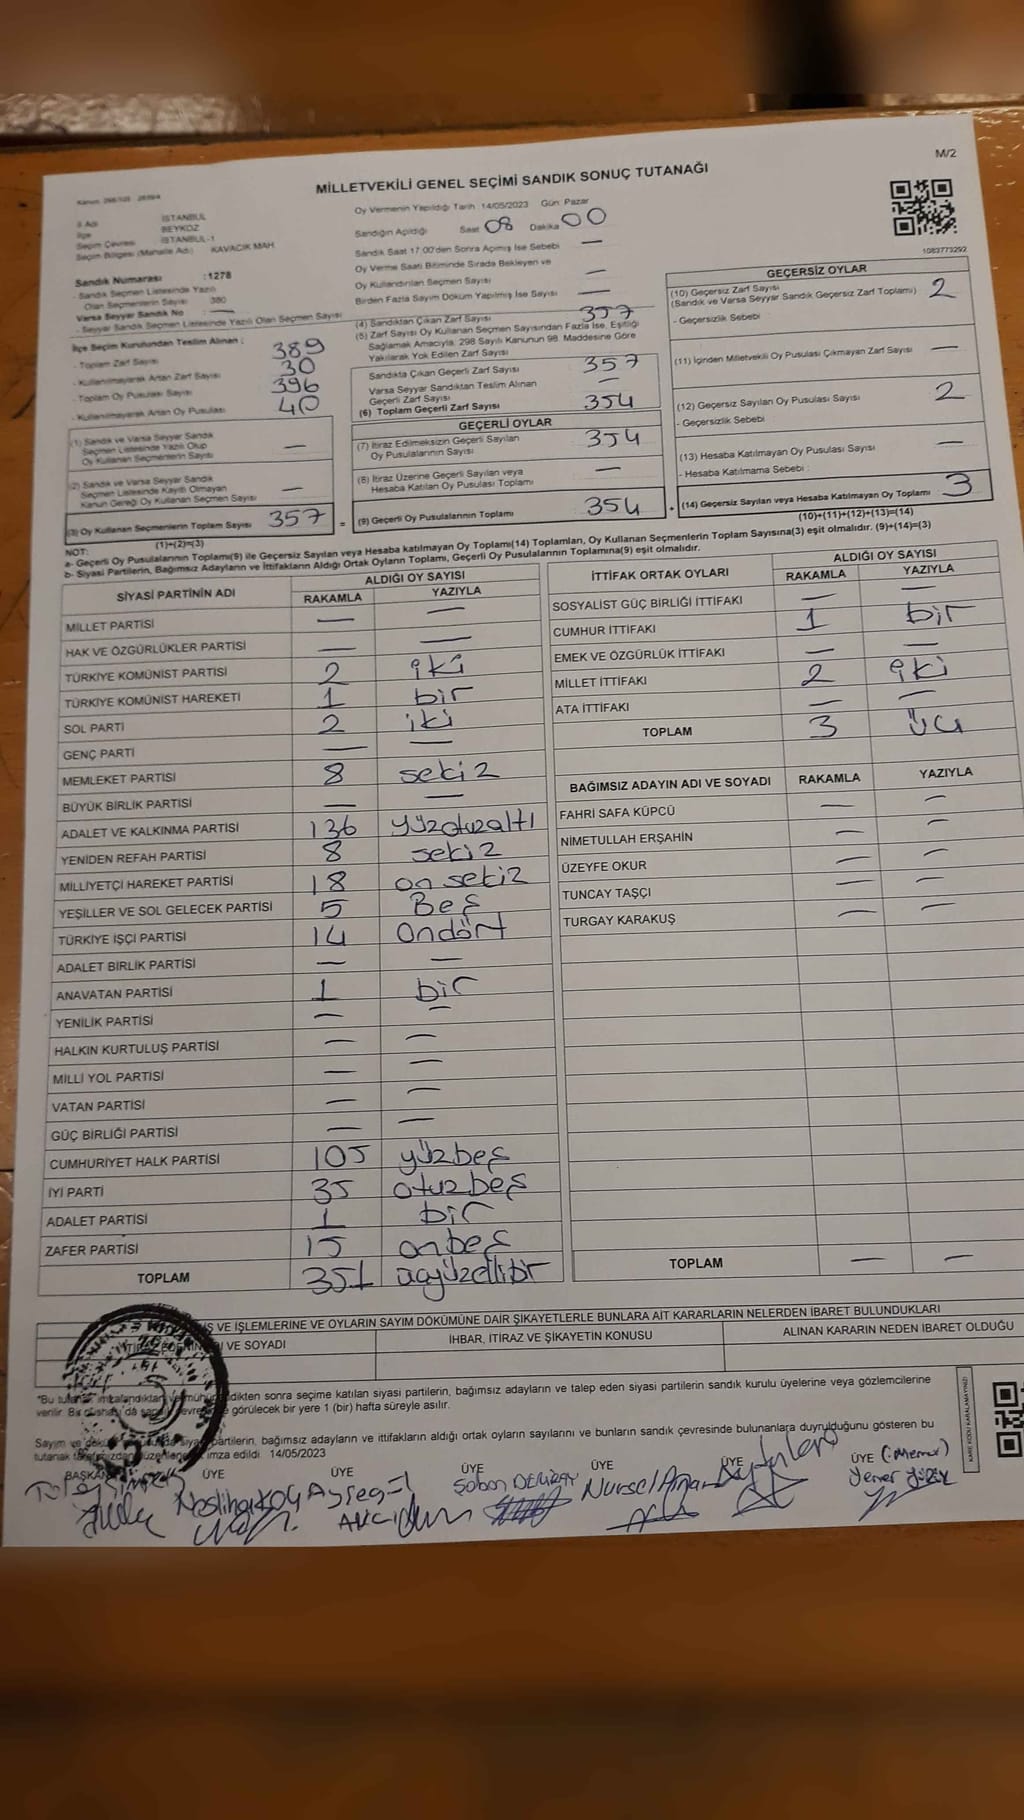 M/2
MİLLETVEKİLİ GENEL SEÇİMİ SANDIK SONUÇ TUTANAĞI
İl Adı İSTANBUL
İlçe BEYKOZ
Seçim Çevresi İSTANBUL-1
Seçim Bölgesi (Mahalle Adı) KAVACIK MAH.
Oy Vermenin Yapıldığı Tarih: 14/05/2023 Gün: Pazar
Sandığın Açıldığı Saat 08 Dakika 00
Sandık Saat 17.00'den Sonra Açılmış İse Sebebi —
Oy Verme Saati Bitiminde Sırada Bekleyen ve
Oy Kullandırılan Seçmen Sayısı —
Birden Fazla Sayım Döküm Yapılmış İse Sayısı —
1083773292
Sandık Numarası : 1278
- Sandık Seçmen Listesinde Yazılı
Olan Seçmenlerin Sayısı 380
Varsa Seyyar Sandık No —
- Seyyar Sandık Seçmen Listesinde Yazılı Olan Seçmen Sayısı
İlçe Seçim Kurulundan Teslim Alınan :
- Toplam Zarf Sayısı 389
- Kullanılmayarak Artan Zarf Sayısı 30
- Toplam Oy Pusulası Sayısı 396
- Kullanılmayarak Artan Oy Pusulası 40
(1) Sandık ve Varsa Seyyar Sandık
Seçmen Listesinde Yazılı Olup
Oy Kullanan Seçmenlerin Sayısı —
(2) Sandık ve Varsa Seyyar Sandık
Seçmen Listesinde Kayıtlı Olmayan
Kanun Gereği Oy Kullanan Seçmen Sayısı —
(3) Oy Kullanan Seçmenlerin Toplam Sayısı 357 =
(1)+(2)=(3)
(4) Sandıktan Çıkan Zarf Sayısı 357
(5) Zarf Sayısı Oy Kullanan Seçmen Sayısından Fazla İse, Eşitliği
Sağlamak Amacıyla, 298 Sayılı Kanunun 98. Maddesine Göre
Yakılarak Yok Edilen Zarf Sayısı
Sandıkta Çıkan Geçerli Zarf Sayısı 357
Varsa Seyyar Sandıktan Teslim Alınan
Geçerli Zarf Sayısı —
(6) Toplam Geçerli Zarf Sayısı 354
GEÇERLİ OYLAR
(7) İtiraz Edilmeksizin Geçerli Sayılan
Oy Pusulalarının Sayısı 354
(8) İtiraz Üzerine Geçerli Sayılan veya
Hesaba Katılan Oy Pusulası Toplamı —
(9) Geçerli Oy Pusulalarının Toplamı 354 +
GEÇERSİZ OYLAR
(10) Geçersiz Zarf Sayısı
(Sandık ve Varsa Seyyar Sandık Geçersiz Zarf Toplamı) 2
- Geçersizlik Sebebi
(11) İçinden Milletvekili Oy Pusulası Çıkmayan Zarf Sayısı —
(12) Geçersiz Sayılan Oy Pusulası Sayısı 2
- Geçersizlik Sebebi
(13) Hesaba Katılmayan Oy Pusulası Sayısı —
- Hesaba Katılmama Sebebi :
(14) Geçersiz Sayılan veya Hesaba Katılmayan Oy Toplamı 3
(10)+(11)+(12)+(13)=(14)
NOT:
a- Geçerli Oy Pusulalarının Toplamı(9) ile Geçersiz Sayılan veya Hesaba katılmayan Oy Toplamı(14) Toplamları, Oy Kullanan Seçmenlerin Toplam Sayısına(3) eşit olmalıdır. (9)+(14)=(3)
b- Siyasi Partilerin, Bağımsız Adayların ve İttifakların Aldığı Ortak Oyların Toplamı, Geçerli Oy Pusulalarının Toplamına(9) eşit olmalıdır.
SİYASİ PARTİNİN ADI ALDIĞI OY SAYISI
RAKAMLA YAZIYLA
MİLLET PARTİSİ — —
HAK VE ÖZGÜRLÜKLER PARTİSİ — —
TÜRKİYE KOMÜNİST PARTİSİ 2 iki
TÜRKİYE KOMÜNİST HAREKETİ 1 bir
SOL PARTİ 2 iki
GENÇ PARTİ — —
MEMLEKET PARTİSİ 8 sekiz
BÜYÜK BİRLİK PARTİSİ — —
ADALET VE KALKINMA PARTİSİ 136 yüzotuzaltı
YENİDEN REFAH PARTİSİ 8 sekiz
MİLLİYETÇİ HAREKET PARTİSİ 18 on sekiz
YEŞİLLER VE SOL GELECEK PARTİSİ 5 Beş
TÜRKİYE İŞÇİ PARTİSİ 14 Ondört
ADALET BİRLİK PARTİSİ — —
ANAVATAN PARTİSİ 1 bir
YENİLİK PARTİSİ — —
HALKIN KURTULUŞ PARTİSİ — —
MİLLİ YOL PARTİSİ — —
VATAN PARTİSİ — —
GÜÇ BİRLİĞİ PARTİSİ — —
CUMHURİYET HALK PARTİSİ 105 yüzbeş
İYİ PARTİ 35 otuzbeş
ADALET PARTİSİ 1 bir
ZAFER PARTİSİ 15 onbeş
TOPLAM 351 üçyüzellibir
İTTİFAK ORTAK OYLARI ALDIĞI OY SAYISI
RAKAMLA YAZIYLA
SOSYALİST GÜÇ BİRLİĞİ İTTİFAKI — —
CUMHUR İTTİFAKI 1 bir
EMEK VE ÖZGÜRLÜK İTTİFAKI — —
MİLLET İTTİFAKI 2 iki
ATA İTTİFAKI — —
TOPLAM 3 üç
BAĞIMSIZ ADAYIN ADI VE SOYADI RAKAMLA YAZIYLA
FAHRİ SAFA KÜPCÜ — —
NİMETULLAH ERŞAHİN — —
ÜZEYFE OKUR — —
TUNCAY TAŞÇI — —
TURGAY KARAKUŞ — —
TOPLAM — —
Ş VE İŞLEMLERİNE VE OYLARIN SAYIM DÖKÜMÜNE DAİR ŞİKAYETLERLE BUNLARA AİT KARARLARIN NELERDEN İBARET BULUNDUKLARI
I VE SOYADI İHBAR, İTİRAZ VE ŞİKAYETİN KONUSU ALINAN KARARIN NEDEN İBARET OLDUĞU
*Bu dikten sonra seçime katılan siyasi partilerin, bağımsız adayların ve talep eden siyasi partilerin sandık kurulu üyelerine veya gözlemcilerine
verilir. Bir görülecek bir yere 1 (bir) hafta süreyle asılır.
Sayım ve partilerin, bağımsız adayların ve ittifakların aldığı ortak oyların sayılarını ve bunların sandık çevresinde bulunanlara duyrulduğunu gösteren bu
tutanak imza edildi. 14/05/2023
KARE KODU KARALAMAYINIZ!
BAŞKAN ÜYE ÜYE ÜYE ÜYE ÜYE ÜYE (:Memur)